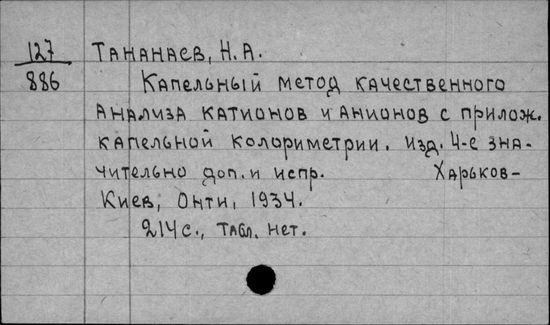 127 Тананаев, Н.А.
886 Капельный метод качественного
анализа катионов и анионов с прилож.
капельной колориметрии. изд. 4-е зна-
чительно доп. и испр. Харьков-
Киев, Онти, 1934.
214 с., табл. нет.